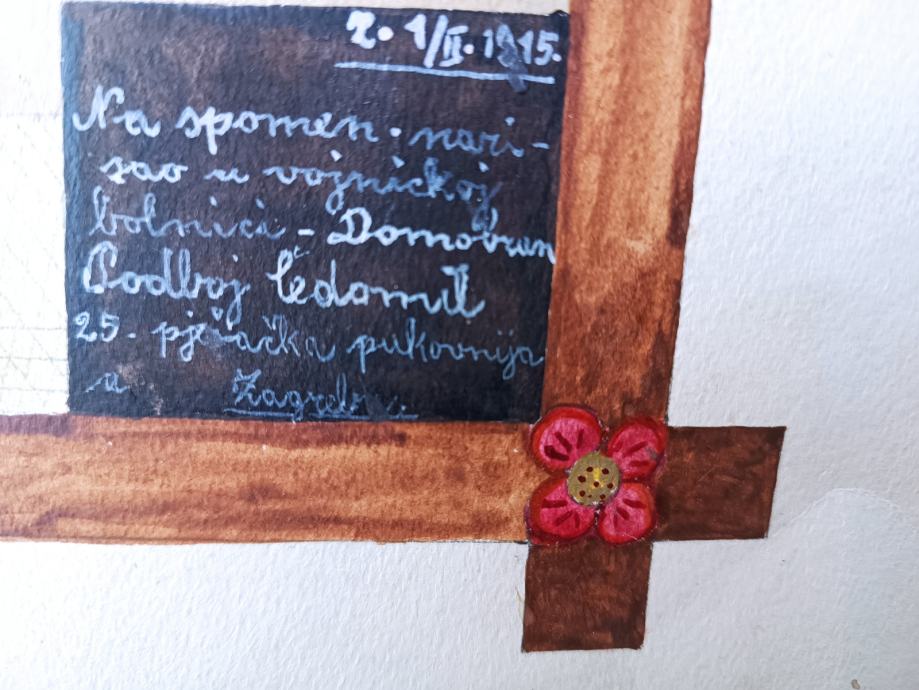 Z. 1/II. 1915.
Na spomen. nari-
sao u vojničkoj
bolnici - Domobran
Podboj Čedomil
25. pješačka pukovnija
a Zagrebu.